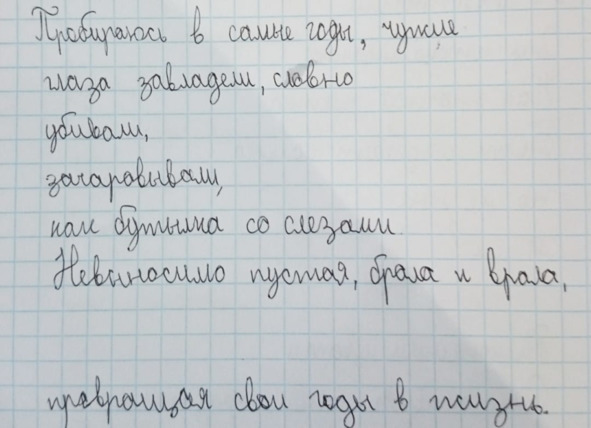 Пробираюсь в самые годы, чужие
глаза завладели, словно
убивали,
зачаровывали,
как бутылка со слезами.
Невыносимо пустая, брала и врала,
превращая свои годы в жизнь.